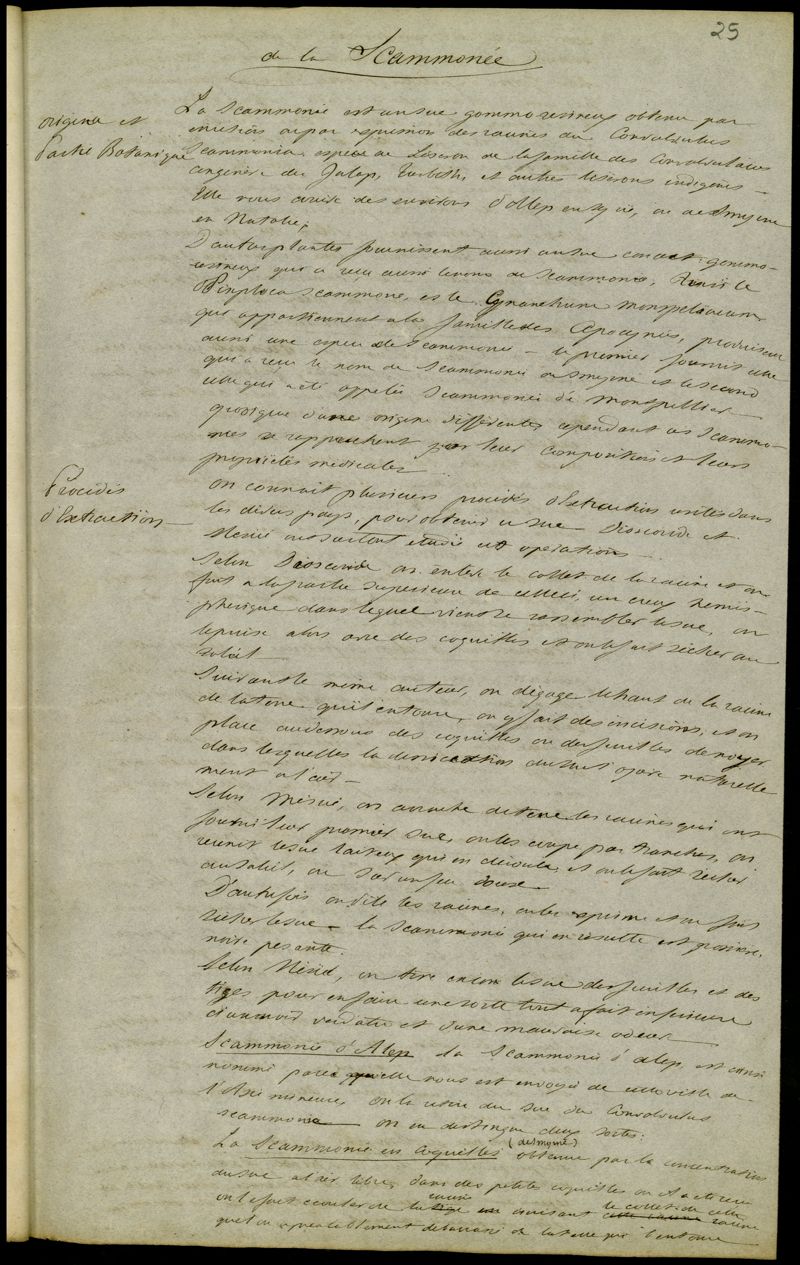 25
de la Scammonée
origine et
Partie Botanique
La Scammonée est un suc gommo resineux obtenu par
incisions ou par expression des racines du Convolvulus
Scammonia espece de Liseron de la famille des Convolvulacées
congénère du Jalap, Turbith, et autres liserons indigenes —
Elle nous arrive des environs d'Alep en Syrie, ou de Smyrne
en Natolie;
D'autres plantes fournissent aussi un suc concret gommo-
resineux qui a reçu aussi le nom de Scammonée,
Periploca Scammone, et le Cynanchum Monspeliacum
qui appartiennent a la famille des Apocynées, produisent
aussi une espece de Scammonée — le premier fournit celle
qui a reçu le nom de Scammonée de Smyrne et le second
celle qui a été appelée Scammonée de Montpellier —
quoique d'une origine différentes cependant ces Scammo-
nées se rapprochent par leur composition et leurs
propriétés médicales
Procédés
d'Extraction —
On connait plusieurs procédés d'Extraction usités dans
les divers pays, pour obtenir ce suc Dioscoride et
Mesué nous ont cet operations
Selon Dioscoride on enleve le collet de la racine et on
fait a la partie superieure de celleci, un creux hemis-
pherique dans lequel vient se rassembler le suc, on
le puise alors avec des coquilles et on le fait sécher au
soleil
Suivant le même auteur, on dégage le haut de la racine
de la terre qui l'entoure, on y fait des incisions, et on
place au dessous des coquilles ou des feuilles de noyer
dans lesquelles la dessiccation du suc s'opere naturelle
ment a l'air —
Selon Mésué, on arrache de terre les racines qui ont
fourni leur premier suc, on les coupe par tranches, on
reunit le suc laiteux qui en découle, et on le fait sécher
au soleil, ou sur un feu doux
D'autrefois on pile les racines, on les exprime et on fait
sécher le suc — la Scammonée qui en résulte est grisatre,
noire pesante.
Selon Mésué, on tire encore le suc des feuilles et des
tiges pour en faire une sorte tout a fait inferieure
d'un noir verdatre et d'une mauvaise odeur —
Scammonée d'Alep La Scammonée d'Alep est ainsi
nommé parce qu'elle nous est envoyée de cette ville de
l'Asie mineure, on la retire du suc du Convolvulus
scammonia — on en distingue deux sortes:
La Scammonée en coquilles (de Smyrne) obtenue par la concentration
du suc a l'air libre, dans des petites coquilles ou
on le fait ecouler de la racine en incisant le collet de cette racine
que l'on a prealablement debarrassé de la terre qui l'entoure